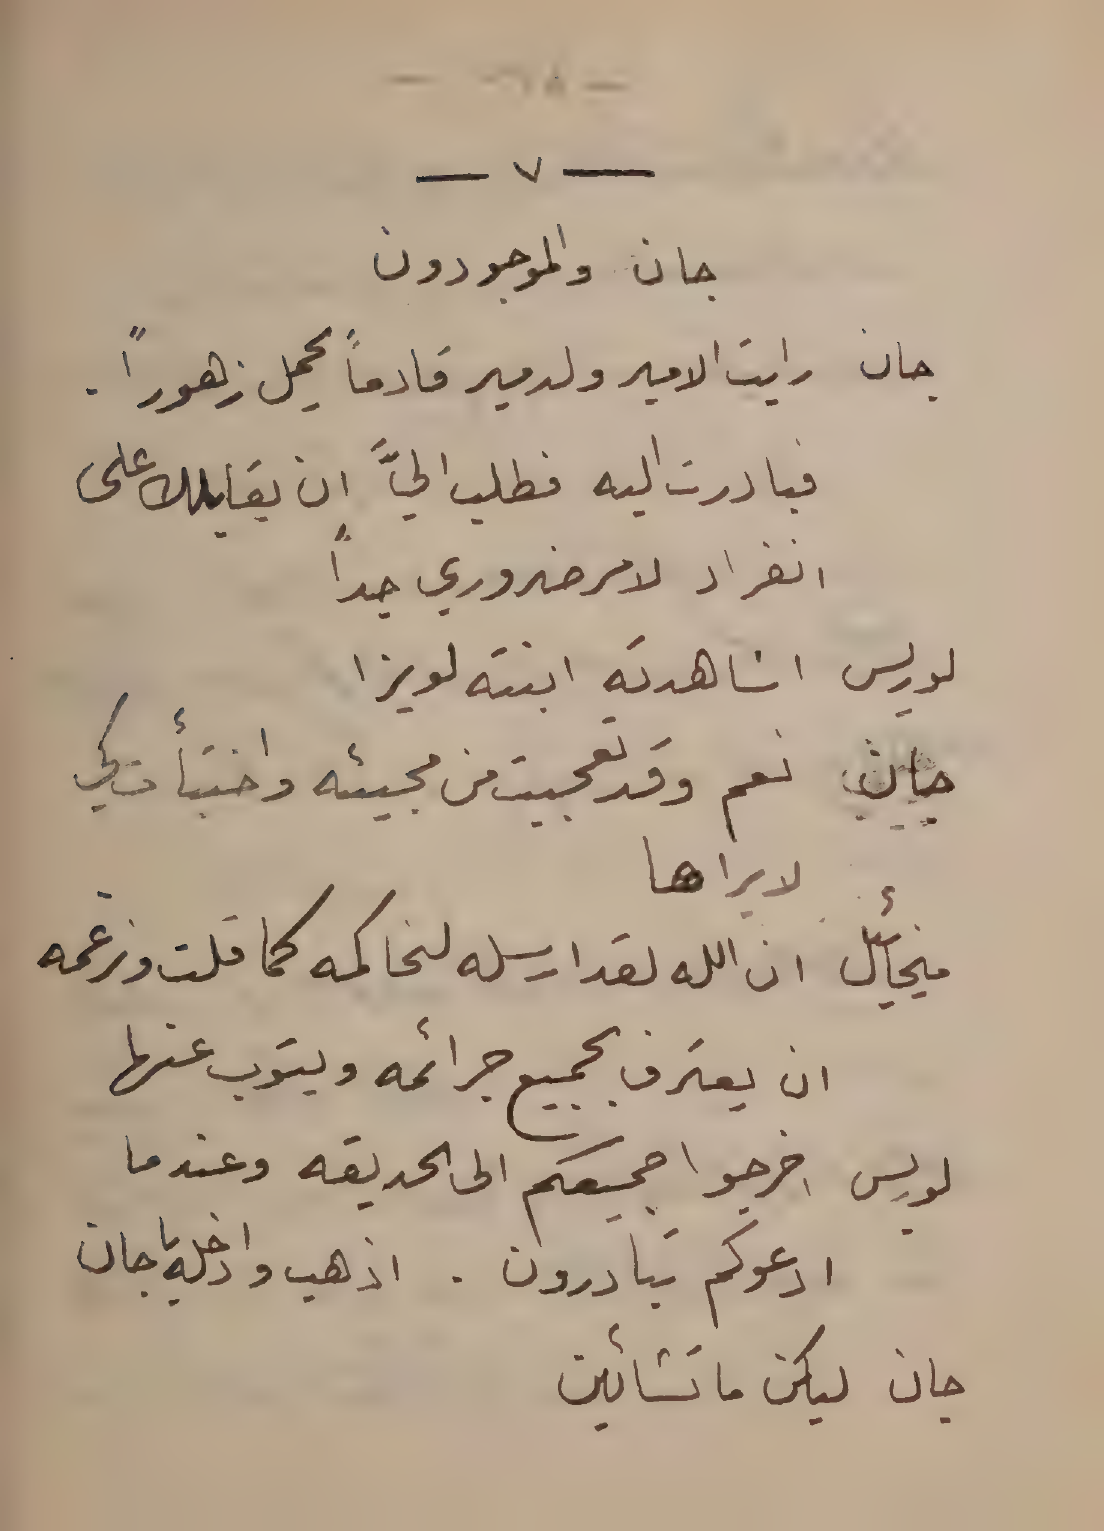 — ٧ —
جان والموجودون
جان رايت الامير ولدمير قادماً يحمل زهوراً .
فبادرت اليه فطلب اليَّ ان يقابلك على
انفراد لامر ضروري جداً
لويس اشاهدته ابنته لويزا
جان نعم وقد تعجبت من مجيئه واختبأت لكي
لا يراها
ميخائيل ان الله لقد ارسله لنحاكمه كما قلت ونرغمه
ان يعترف بجميع جرائمه ويتوب عنها
لويس اخرجوا جميعكم الى الحديقه وعندما
ادعوكم تبادرون . اذهب وادخله يا جان
جان ليكن ما تشائين